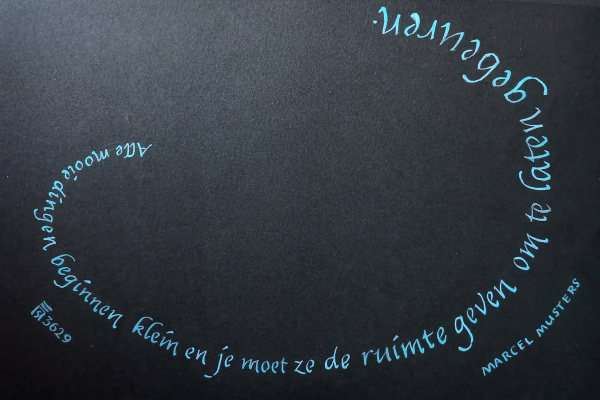 Alle mooie dingen beginnen klein en je moet ze de ruimte geven om te laten gebeuren.
MARCEL MUSTERS
3629